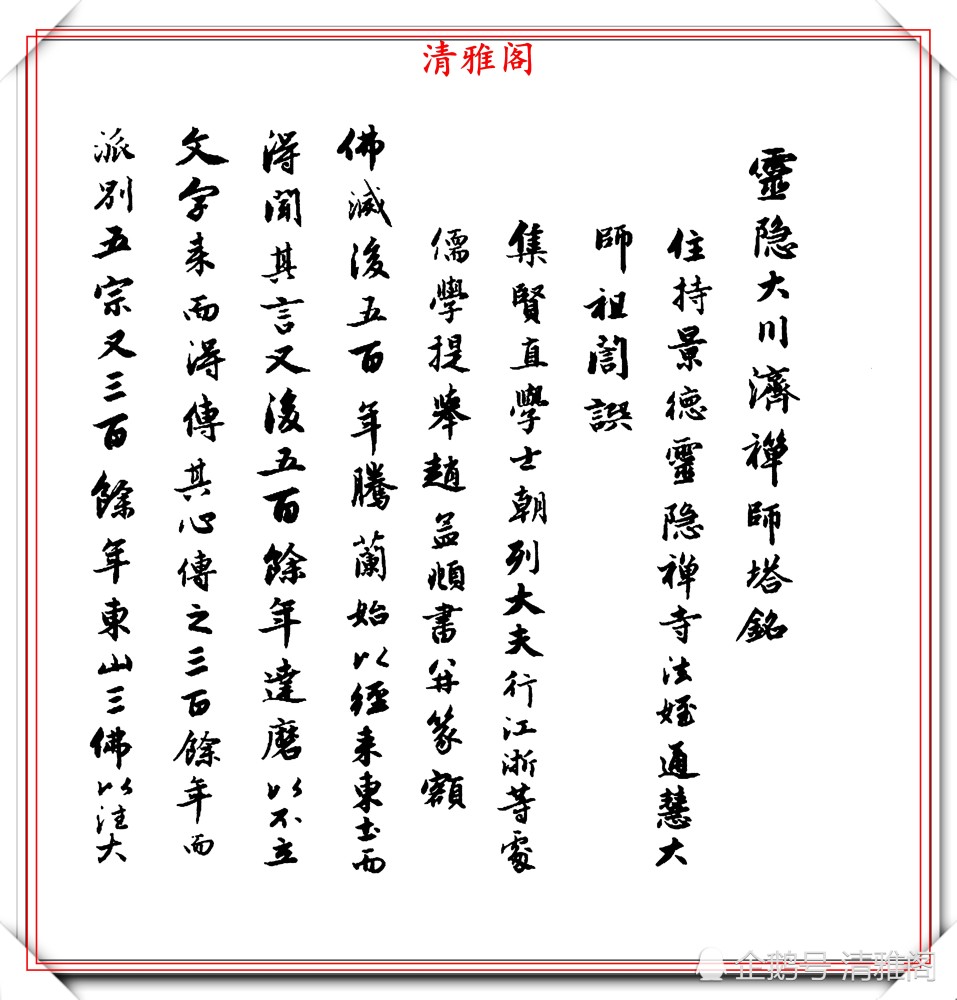 清雅阁
靈隐大川濟禅師塔銘
住持景德靈隐禅寺法姪通慧大
師祖誾譔
集賢直學士朝列大夫行江浙等處
儒學提舉趙孟頫書并篆額
佛滅後五百年騰蘭始以經来東土而
得聞其言又後五百餘年達磨以不立
文字来而得傳其心傳之三百餘年而
派別五宗又三百餘年東山三佛以汪大
企鹅号 清雅阁